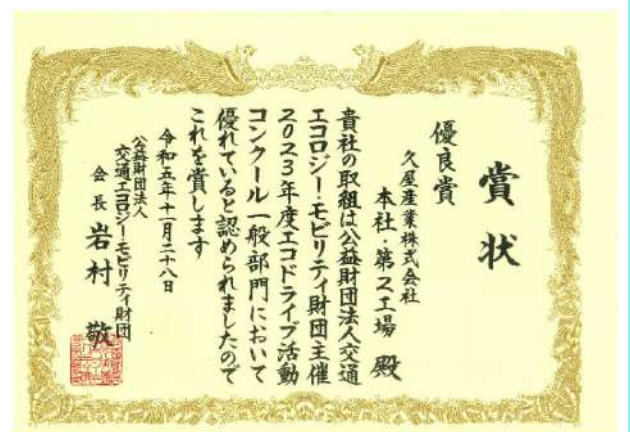 賞状
優良賞
久屋産業株式会社
本社・第2工場 殿
貴社の取組は公益財団法人交通
エコロジー・モビリティ財団主催
2023年度エコドライブ活動
コンクール一般部門において
優れていると認められましたので
これを賞します
令和五年十一月二十八日
公益財団法人
交通エコロジー・モビリティ財団
会長 岩村 敬